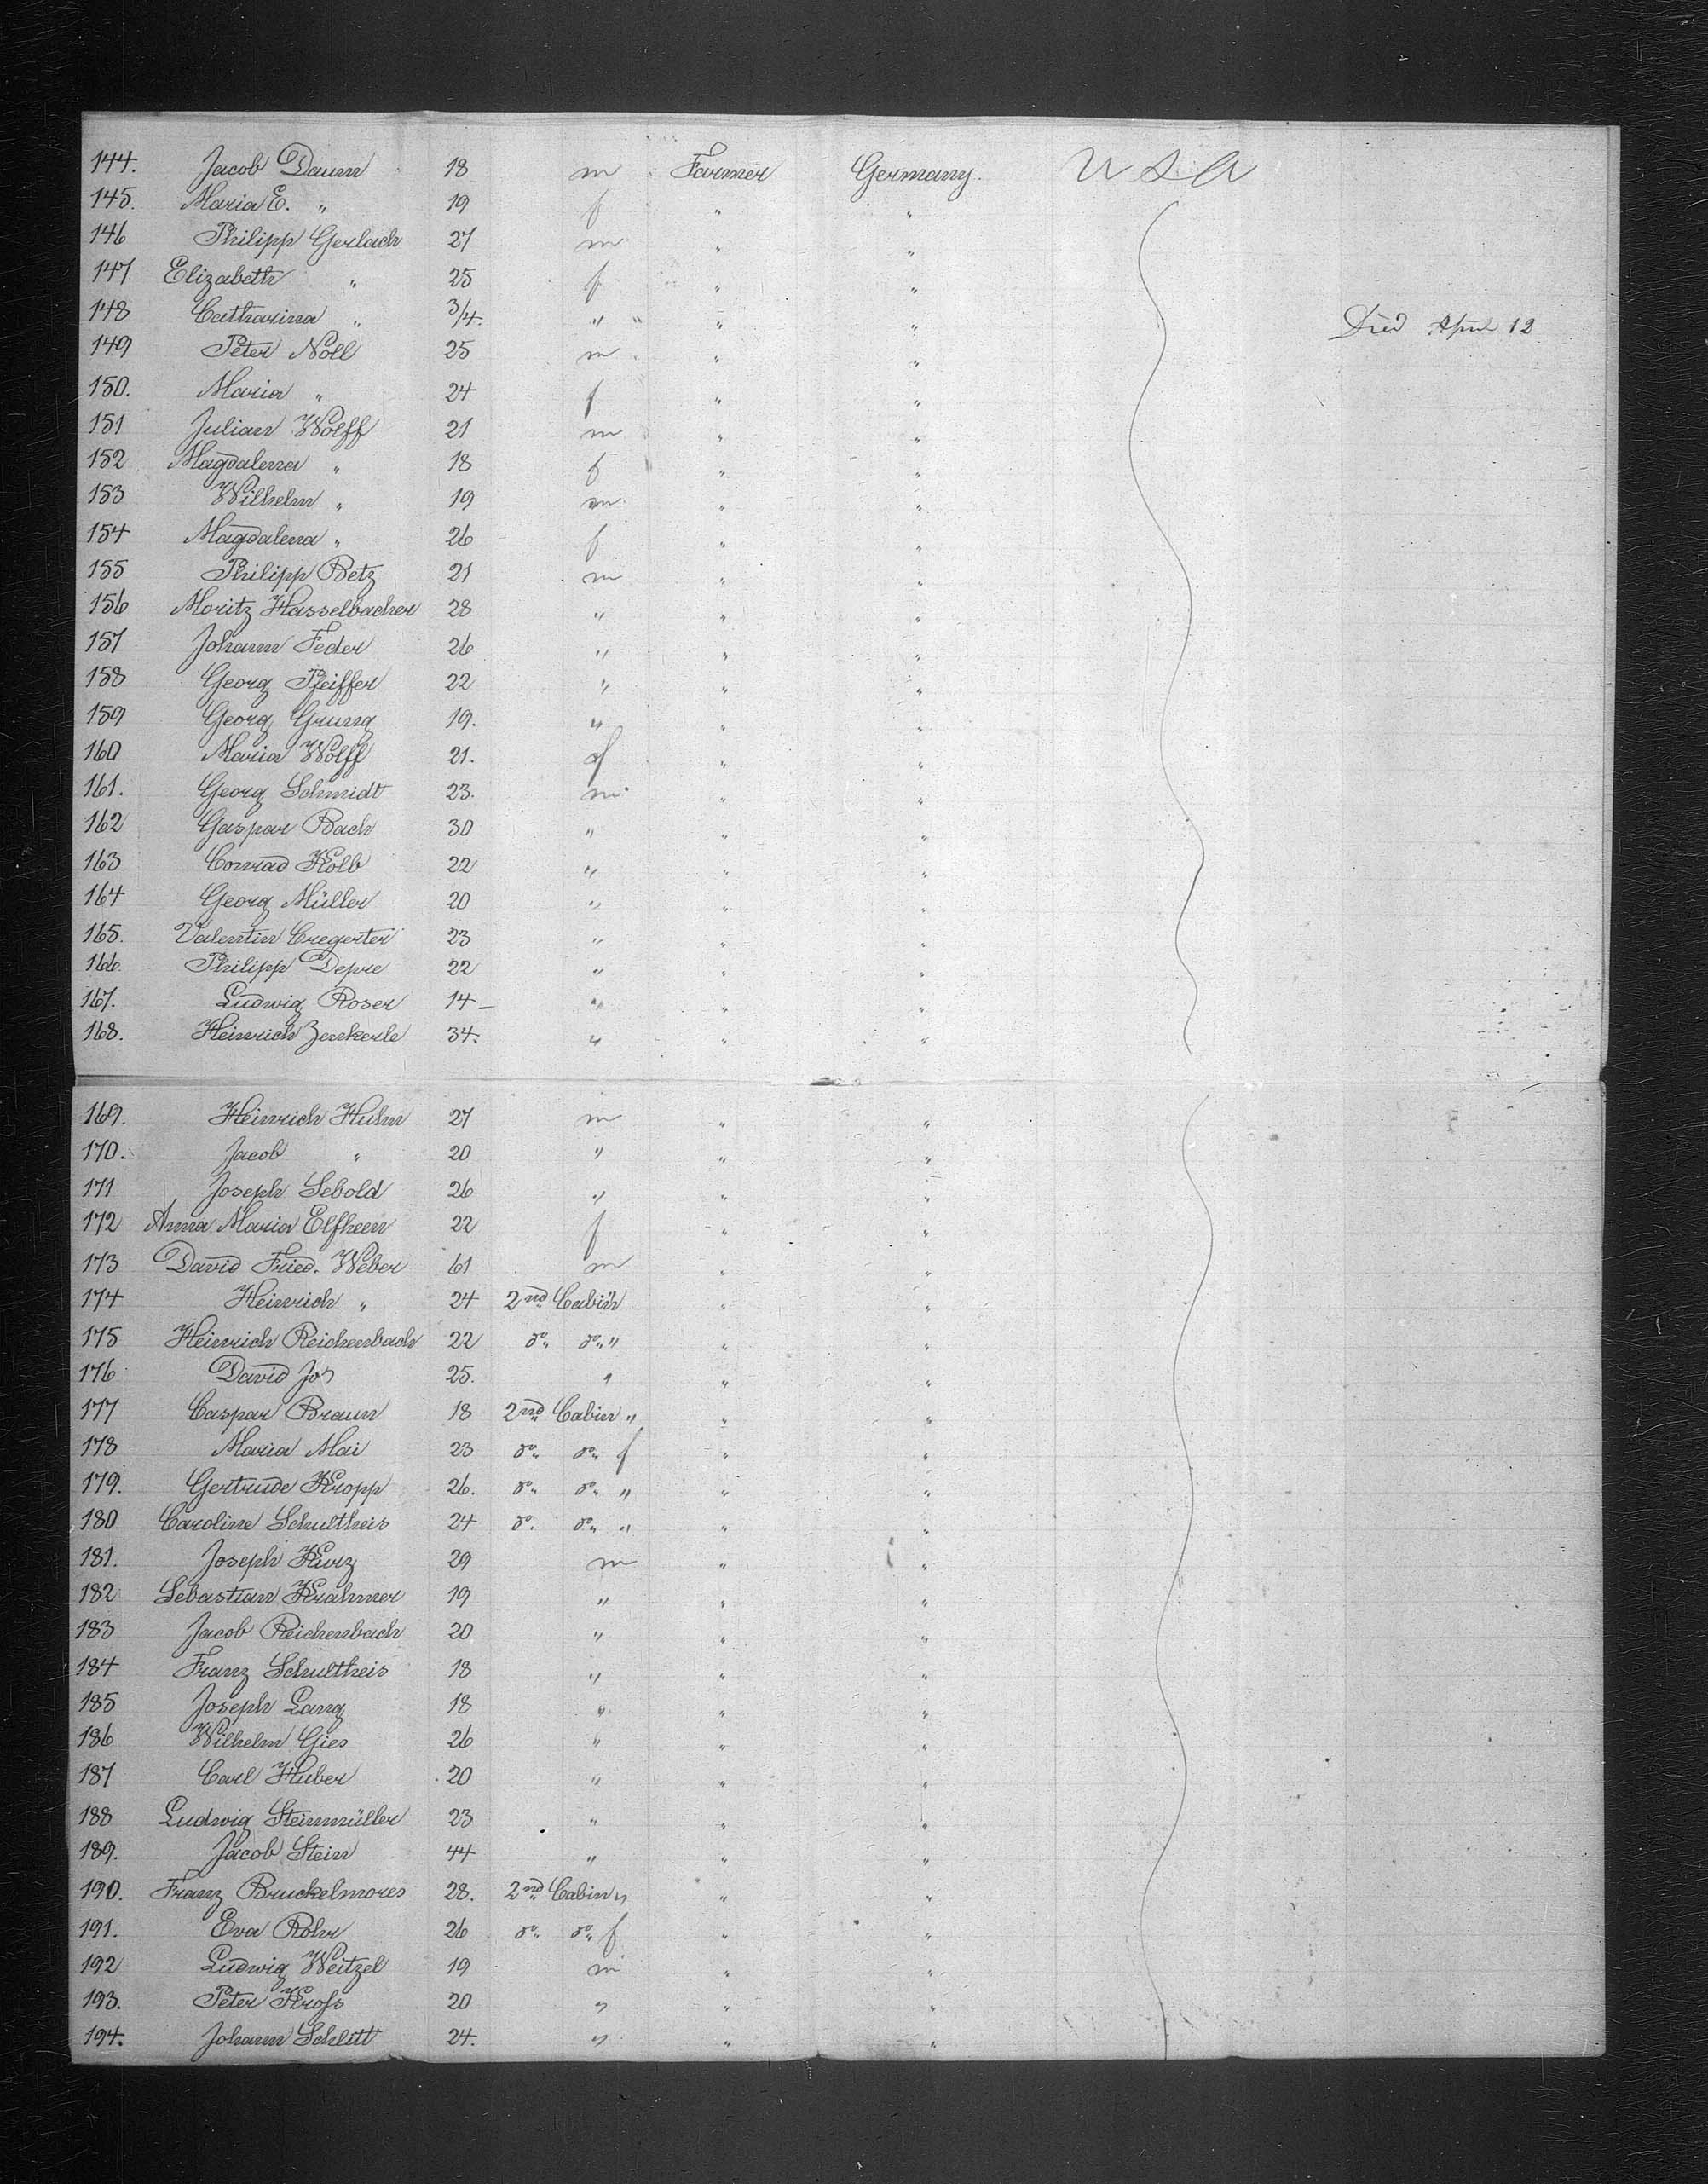 144. Jacob Daum 18 m Farmer Germany. U S A
145. Maria E. " 19 f " "
146 Philipp Gerlach 27 m " "
147 Elizabeth " 25 f " "
148 Catharina " 3/4. " " " " Died April 12
149 Peter Noll 25 m " "
150. Maria " 24 f " "
151 Julian Wolff 21 m " "
152 Magdalena " 18 f " "
153 Wilhelm " 19 m " "
154 Magdalena " 26 f " "
155 Philipp Betz 21 m " "
156 Moritz Hasselbacher 28 " " "
157 Johann Feder 26 " " "
158 Georg Pfeiffer 22 " " "
159 Georg Grung 19. " " "
160 Maria Wolff 21. f " "
161. Georg Schmidt 23. m " "
162 Gaspar Bach 30 " " "
163 Conrad Kolb 22 " " "
164 Georg Müller 20 " " "
165. Valentin Cregerter 23 " " "
166. Philipp Depre 22 " " "
167. Ludwig Roser 14 – " " "
168. Heinrich Zenkerle 34. " " "
169. Heinrich Huhn 27 m " "
170. Jacob " 20 " " "
171 Joseph Sebold 26 " " "
172 Anna Maria Elfheen 22 f " "
173 David Fried. Weber 61 m " "
174 Heinrich " 24 2nd Cabin " " "
175 Heinrich Reichenbach 22 do. do. " " "
176 David Jos 25. " " "
177 Caspar Braun 18 2nd Cabin " " "
178 Maria Mai 23 do. do. f " "
179. Gertrude Kropp 26. do. do. " " "
180 Caroline Schultheis 24 do. do. " " "
181. Joseph Kurz 29 m " "
182 Sebastian Krahmer 19 " " "
183 Jacob Reichenbach 20 " " "
184 Franz Schultheis 18 " " "
185 Joseph Lang 18 " " "
186 Wilhelm Gies 26 " " "
187 Carl Huber 20 " " "
188 Ludwig Steinmüller 23 " " "
189. Jacob Stein 44 " " "
190. Franz Bruckelmores 28. 2nd Cabin " " "
191. Eva Rohr 26 do. do. f " "
192 Ludwig Weitzel 19 m " "
193. Peter Kroſs 20 " " "
194. Johann Schlitt 24. " " "